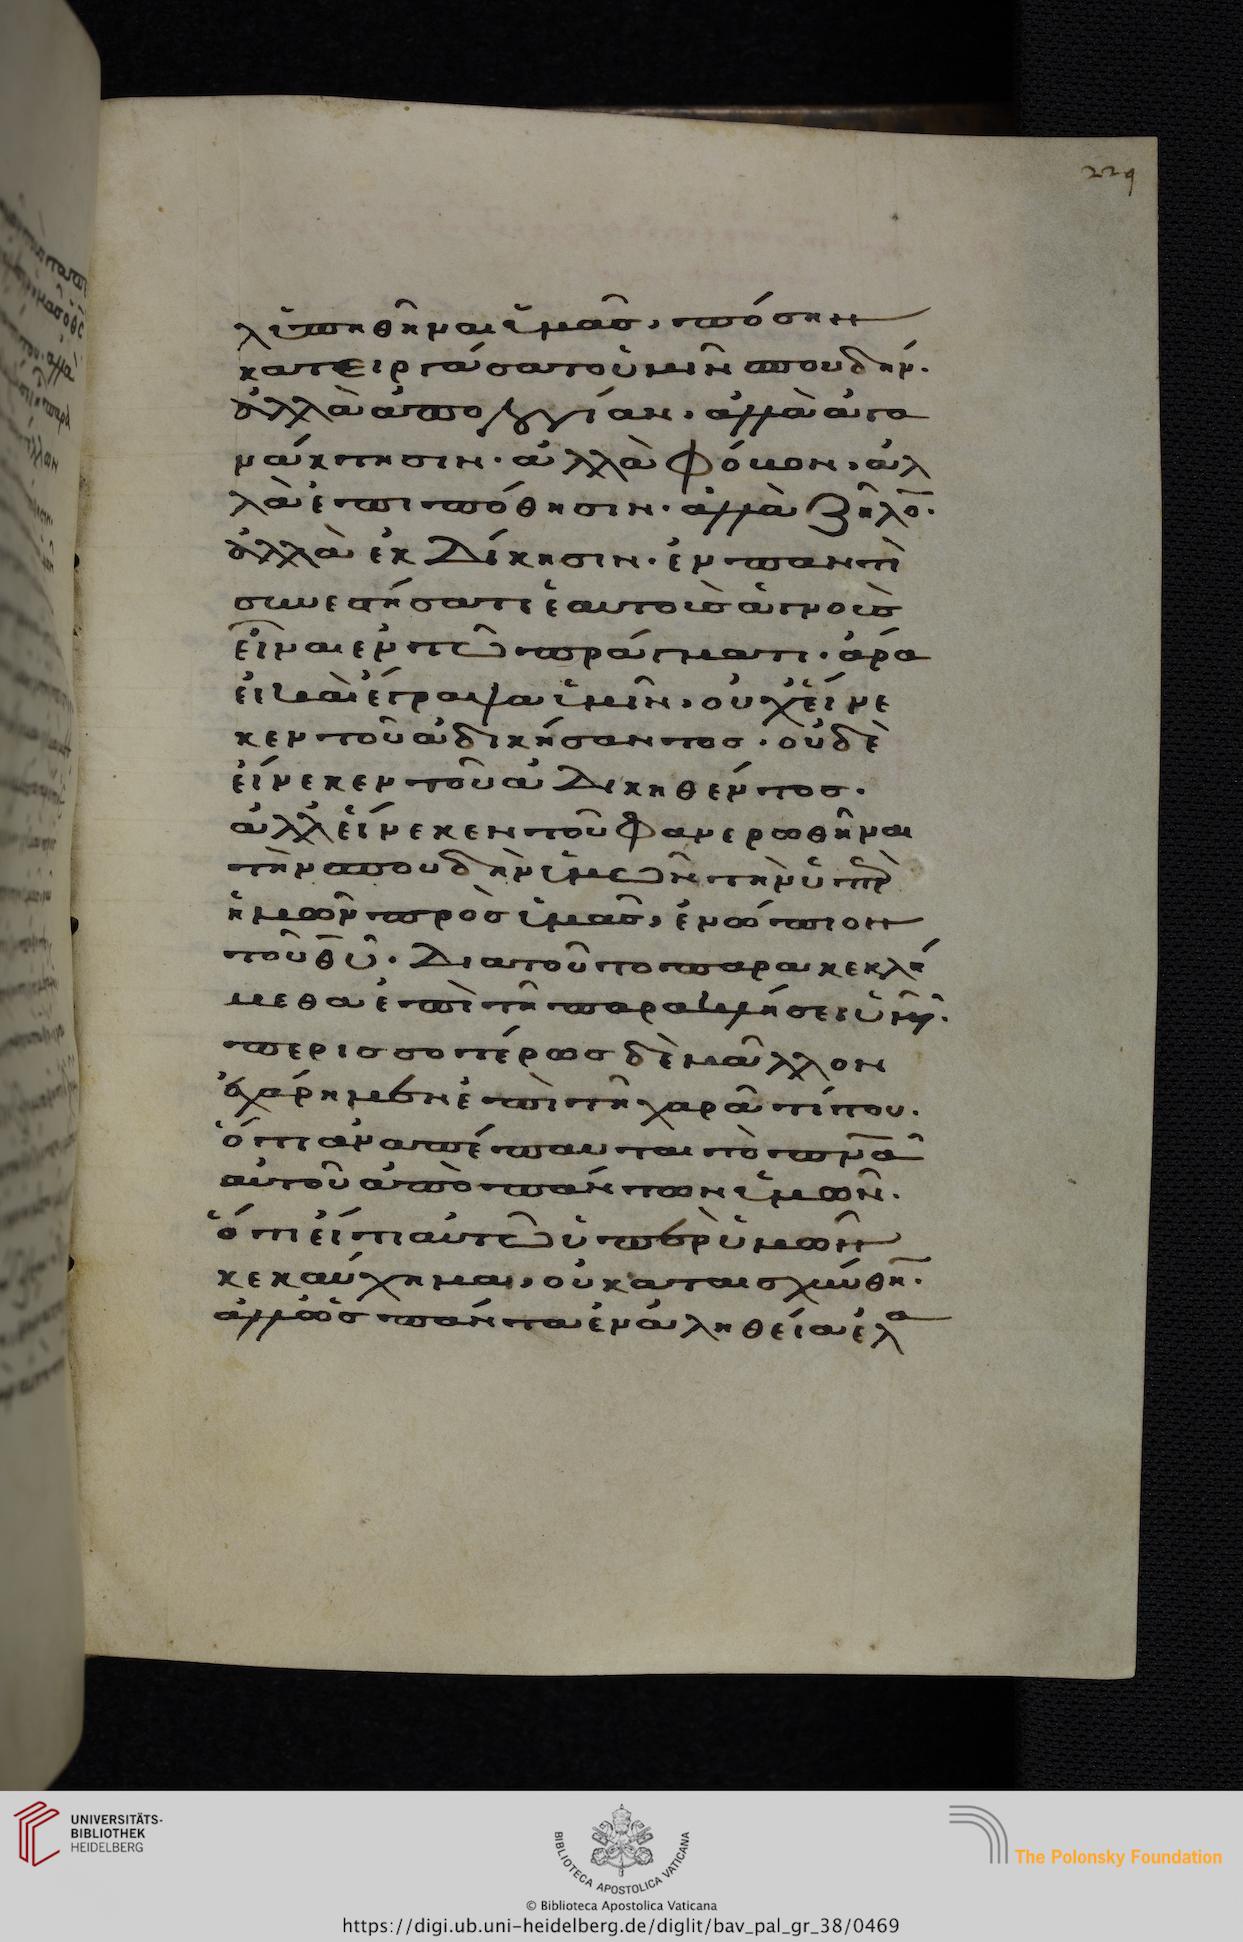 229
λυπηθῆναι ὑμᾶσ, πόσην
κατειργάσατο ὑμῖν σπουδήν.
ἀλλὰ ἀπολογίαν. ἀλλὰ ἀγα
νάκτησιν. ἀλλὰ φόβον. ἀλ
λὰ ἐπιπόθησιν. ἀλλὰ ζῆλο̅.
ἀλλὰ ἐκδίκησιν. ἐν παντὶ
συνεστήσατε ἑαυτοὺσ ἁγνοὺσ
εἶναι ἐν τῶ πράγματι. ἄρα
εἰ καὶ ἔγραψα ὑμῖν, οὐχ εἵνε
κεν τοῦ ἀδικήσαντοσ. οὐδὲ
εἵνεκεν τοῦ ἀδικηθέντοσ.
ἀλλ' εἵνεκεν τοῦ φανερωθῆναι
τὴν σπουδὴν ὑμῶν τὴν ὑπὲρ
ἡμῶν πρὸσ ὑμᾶσ, ἐνώπιον
τοῦ θ̅υ̅. Διατοῦτο παρακεκλή
μεθα ἐπὶ τῆ παρακλήσει ὑμῶν.
περισσοτέρωσ δὲ μᾶλλον
ἐχάρημεν ἐπὶ τῆ χαρᾶ τίτου.
ὅτι ἀναπέπαυται τὸ π̅ν̅α̅
αὐτοῦ ἀπὸ πάντων ὑμῶν.
ὅτι εἴ τι αὐτῶ ὑπὲρ ὑμῶν
κεκαύχημαι, οὐ καταισχύνθην.
ἀλλ' ὡσ πάντα ἐν ἀληθεία ἐλα
UNIVERSITÄTS-
BIBLIOTHEK
HEIDELBERG
BIBLIOTECA APOSTOLICA VATICANA
The Polonsky Foundation
© Biblioteca Apostolica Vaticana
https://digi.ub.uni-heidelberg.de/diglit/bav_pal_gr_38/0469